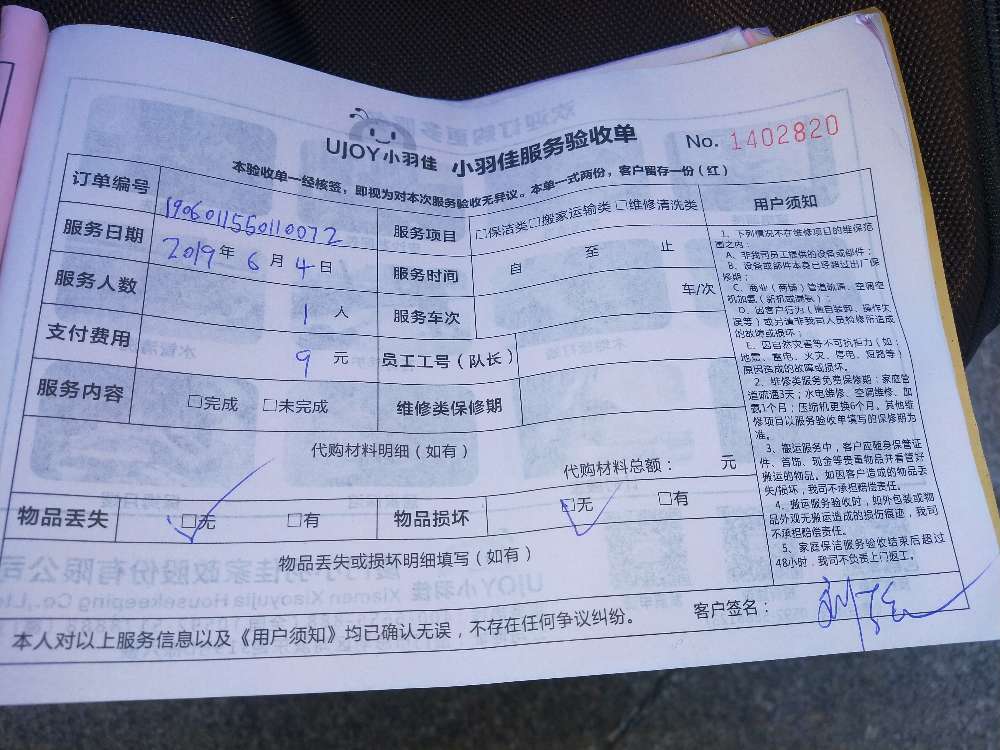 UJOY小羽佳 小羽佳服务验收单 No. 1402820
本验收单一经核签，即视为对本次服务验收无异议。本单一式两份，客户留存一份（红）
订单编号 190601155011007２ 服务项目 □保洁类□搬家运输类□维修清洗类
服务日期 2019年6月4日 服务时间 自 至 止
服务人数 1人 服务车次 车/次
支付费用 9元 员工工号（队长）
服务内容 □完成 □未完成 维修类保修期
代购材料明细（如有）
代购材料总额： 元
物品丢失 □无 □有 物品损坏 □无 □有
物品丢失或损坏明细填写（如有）
本人对以上服务信息以及《用户须知》均已确认无误，不存在任何争议纠纷。 客户签名：
用户须知
1、下列情况不在维修项目的维保范
围之内：
A、非我司员工提供的设备或部件；
B、设备或部件本身已经超过出厂保
修期；
C、商业（商铺）管道疏通、空调空
机加氟（新机或漏氟）；
D、因客户行为（擅自装卸、操作失
误等）或另请非我司人员检修所造成
的故障或损坏；
E、因自然灾害等不可抗拒力（如：
地震、雷电、火灾、停电、短路等）
原因造成的故障或损坏。
2、维修类服务免费保修期：家庭管
道疏通3天；水电维修、空调维修、加
氟1个月；压缩机更换6个月。其他维
修项目以服务验收单填写的保修期为
准。
3、搬运服务中，客户应随身保管证
件、首饰、现金等贵重物品并看管好
搬运的物品。如因客户造成的物品丢
失/损坏，我司不承担赔偿责任。
4、搬运服务验收时，如外包装或物
品外观无搬运造成的损伤痕迹，我司
不承担赔偿责任。
5、家庭保洁服务验收结束后超过
48小时，我司不负责上门返工。